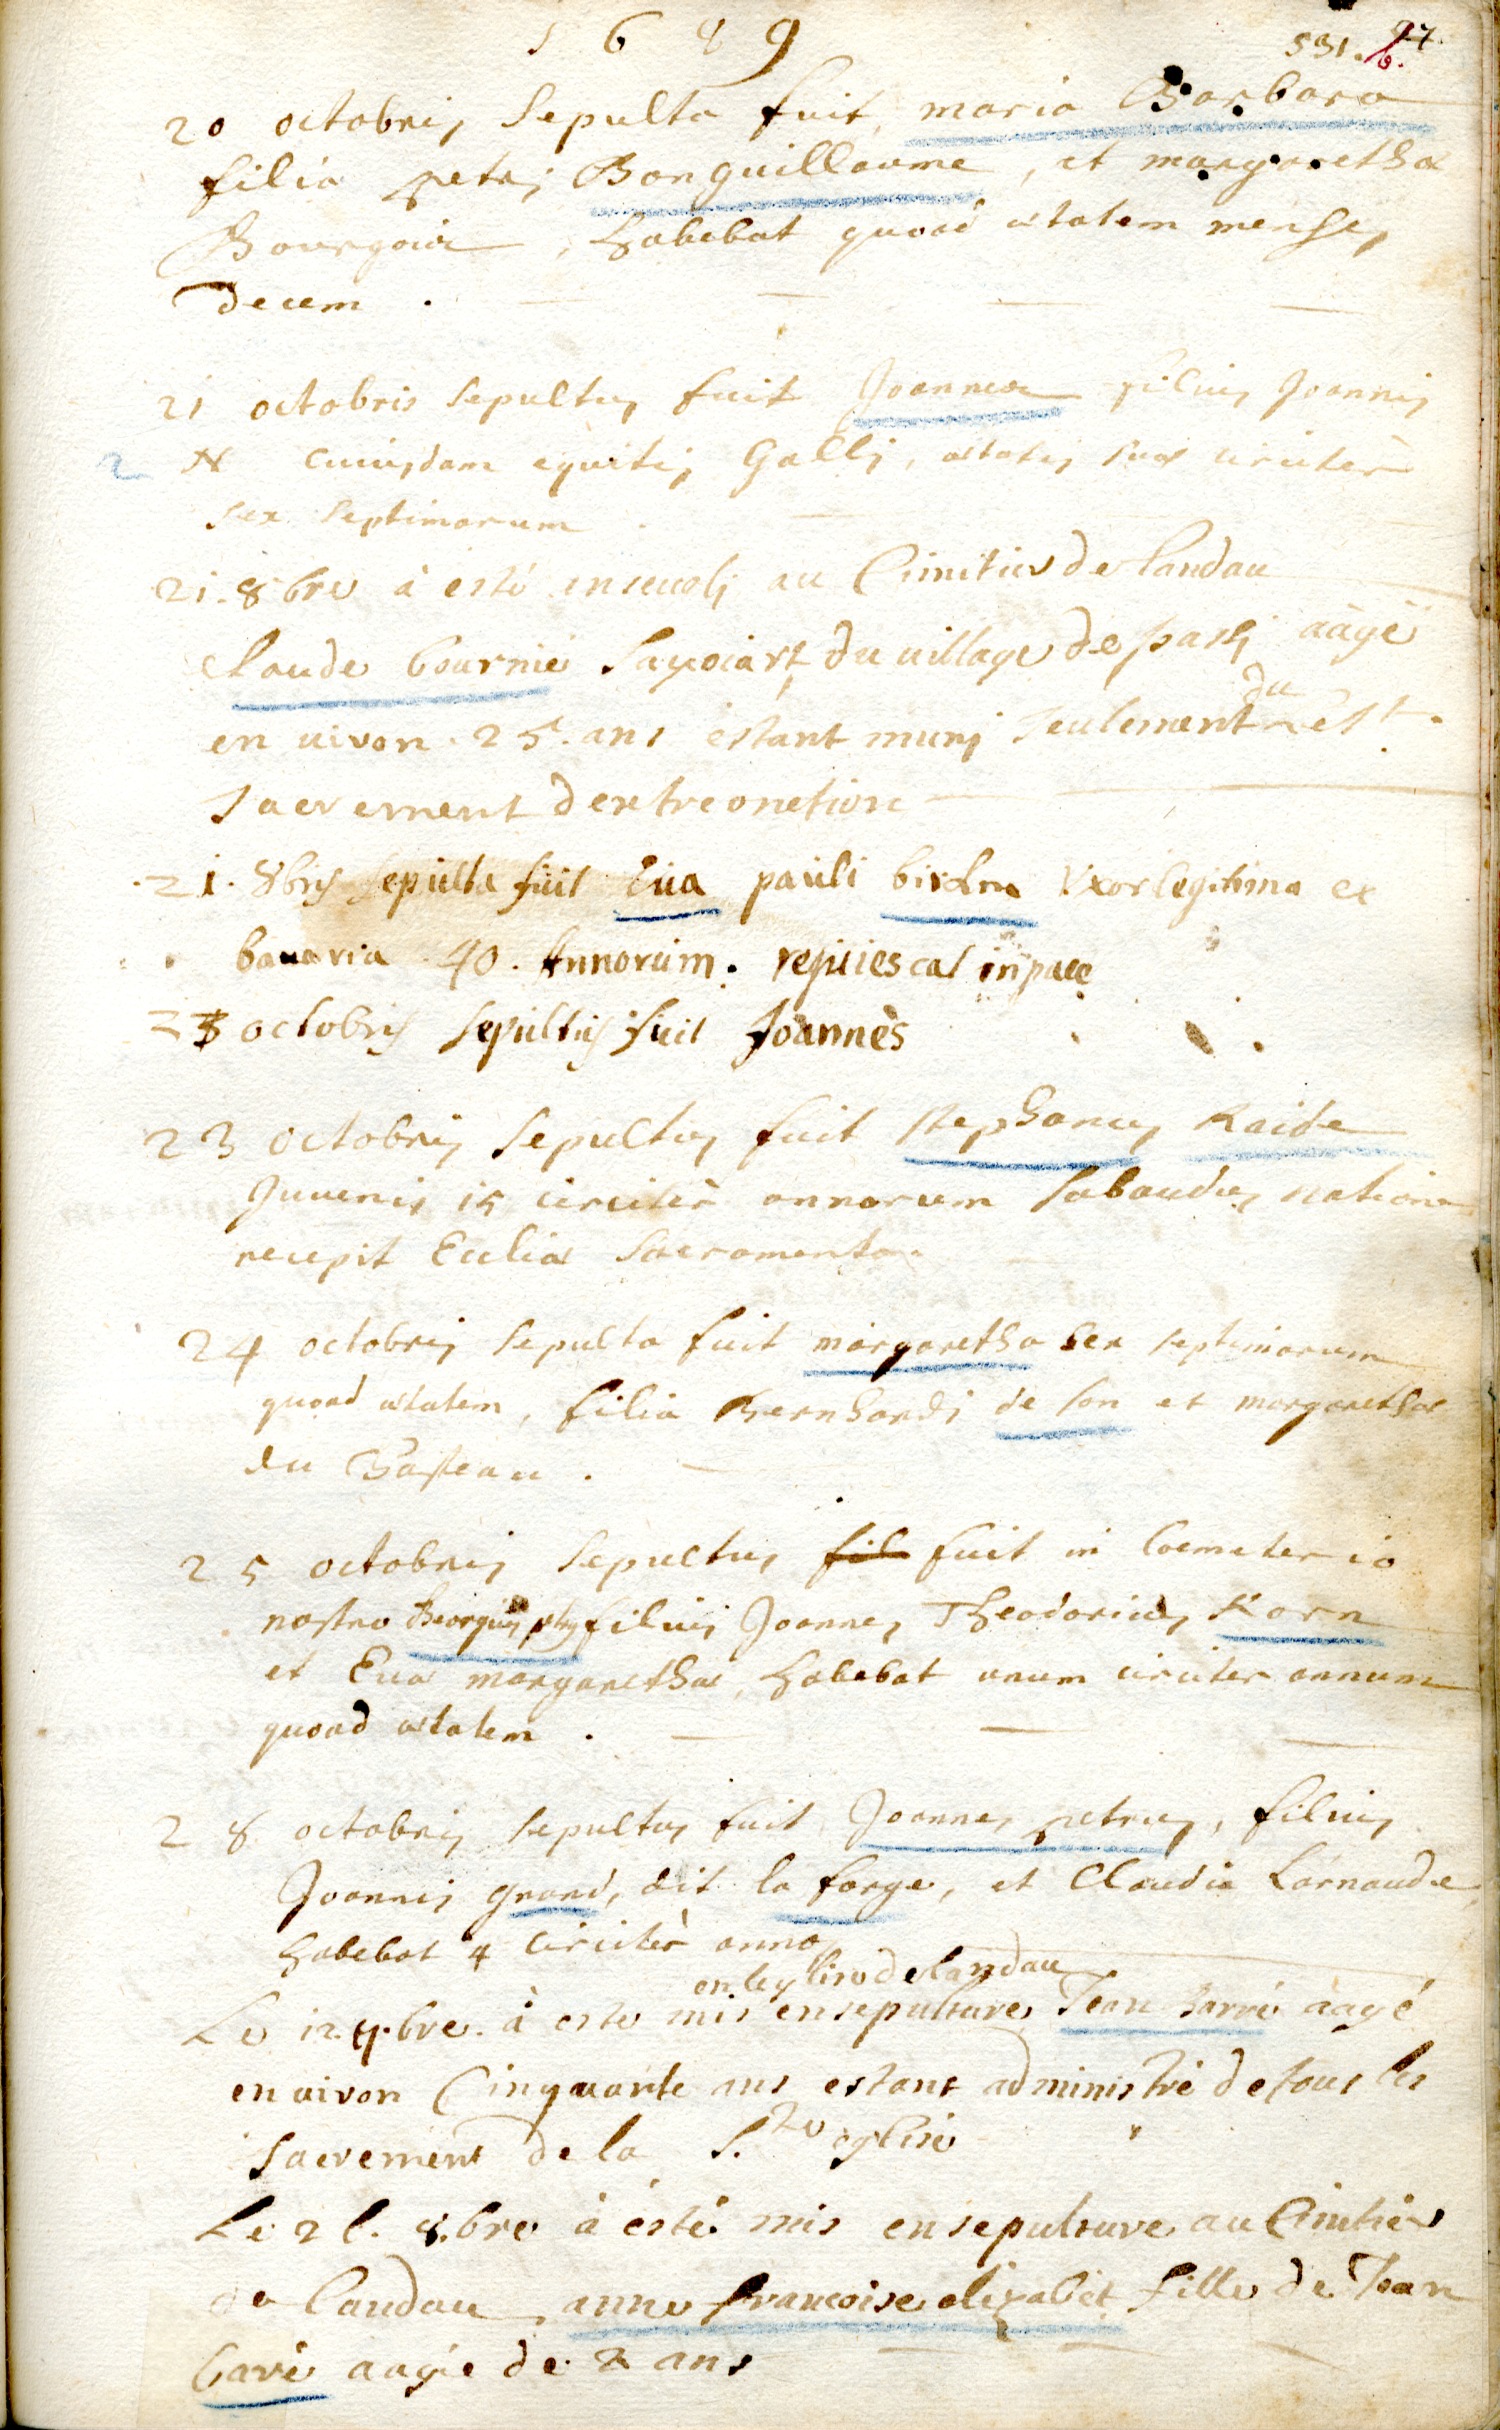 1689
531. 97.
6.
20 octobris sepulta fuit, maria Barbara
filia petri Bonguillaume, et margaretha
Bourgois, habebat quoad ætatem menses
decem.
21 octobris sepultus fuit Joannes filius Joannis
2 N cuiusdam equitis Galli, ætatis suæ circiter
sex septimarum
21. 8bre à esté enseuelj au Cimitier de Landau
claude bournié Sauoiart du uillage de passj aàgé
du
en uiron 25. ans éstant munj seulement st.
sacrement dextreonction
21. 8bris sepulta fuit Eua pauli Uxor legitima ex
bauaria 40. Annorum. requiescat in pace
23 octobris sepultus fuit Joannes
23 octobris sepultus fuit stephanus Raide
Juuenis 15 circitèr annorum Sabaudus natione
recepit Ecclia Sacramenta
24 octobris sepulta fuit margaretha sex septimarum
quoad ætatem, filia Bernhardi de son et margarethæ
du Chasteau.
25 octobris sepultus fil fuit in Coemeterio
nostro Georgius filius Joannes Theodoricus Korn
et Eua margarethæ, habebat unum circiter annum
quoad ætatem.
28 octobris sepultus fuit Joannes petrus, filius
Joannis grand, dit la forge, et Claudia Larnaude
habebat 4 circitèr annos
en leglise de landau
Le 12. 8.bre. à esté mis ensepulture Jean barré àagé
en uiron Cinquante ans estant administré de tous les
sacrement de la S.te eglise
Le 21. 8.bre à ésté mis ensepulture au Cimitier
de Landau anne francoise elizabet fille de Jean
baré aagée de 2 ans